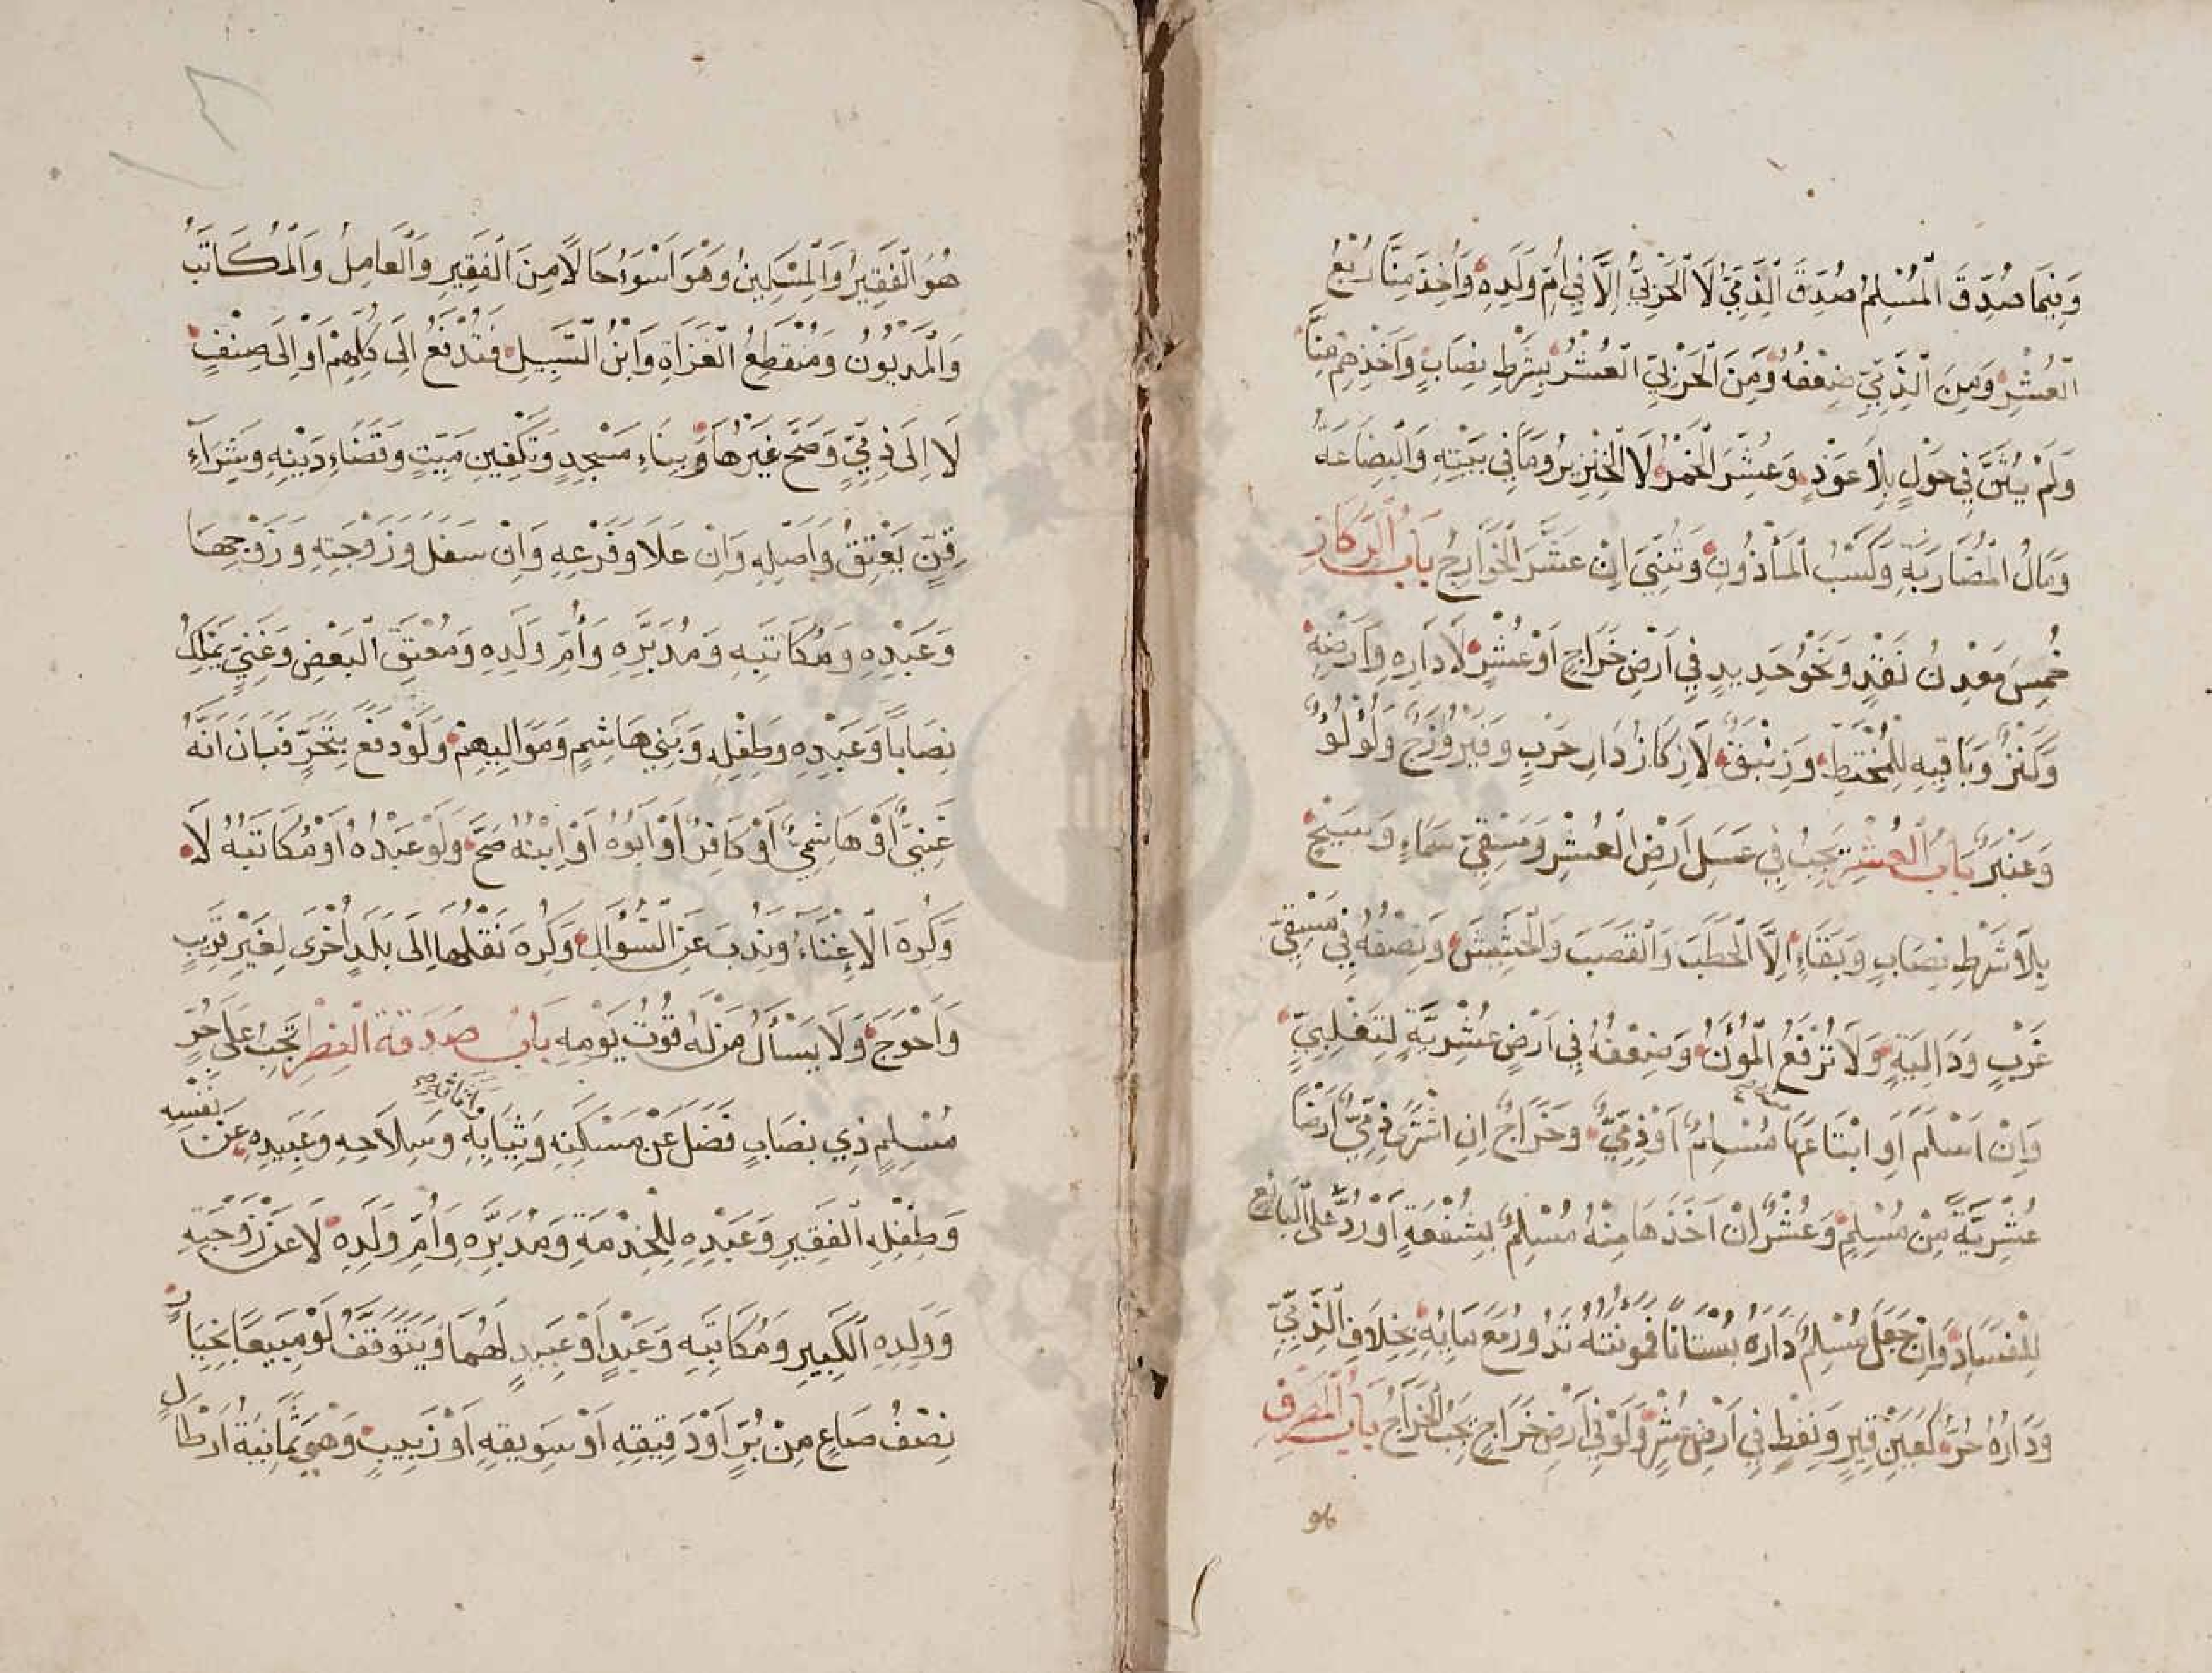 وَفِيمَا صُدِّقَ الْمُسْلِمُ صُدِّقَ الذِّمِّيُّ لَا الْحَرْبِيُّ إِلَّا فِي أُمِّ وَلَدِهِ وَأُخِذَ مِنَّا رُبْعُ
الْعُشْرِ وَمِنَ الذِّمِّيِّ ضِعْفُهُ وَمِنَ الْحَرْبِيِّ الْعُشْرُ بِشَرْطِ نِصَابٍ وَأَخْذِهِمْ مِنَّا
وَلَمْ يُثَنَّ فِي حَوْلٍ بِلَا عَوْدٍ وَعُشِّرَ الْخَمْرُ لَا الْخِنْزِيرُ وَمَا فِي بَيْتِهِ وَالْبِضَاعَةُ
وَمَالُ الْمُضَارَبَةِ وَكَسْبُ الْمَأْذُونِ وَثُنِّيَ إِنْ عَشَّرَ الْخَوَارِجُ بَابُ الرِّكَازِ
خُمِسَ مَعْدِنُ نَقْدٍ وَنَحْوُ حَدِيدٍ فِي أَرْضِ خَرَاجٍ أَوْ عُشْرٍ لَا دَارِهِ وَأَرْضِهِ
وَكَنْزٌ وَبَاقِيهِ لِلْمُخْتَطِّ وَزِئْبَقٌ لَا رِكَازُ دَارِ حَرْبٍ وَفَيْرُوزَجٌ وَلُؤْلُؤٌ
وَعَنْبَرٌ بَابُ الْعُشْرِ يَجِبُ فِي عَسَلِ أَرْضِ الْعُشْرِ وَمَسْقِيِّ سَمَاءٍ وَسَيْحٍ
بِلَا شَرْطِ نِصَابٍ وَبَقَاءٍ إِلَّا الْحَطَبَ وَالْقَصَبَ وَالْحَشِيشَ وَنِصْفُهُ فِي مَسْقِيِّ
غَرْبٍ وَدَالِيَةٍ وَلَا تُرْفَعُ الْمُؤَنُ وَضِعْفُهُ فِي أَرْضٍ عُشْرِيَّةٍ لِتَغْلِبِيٍّ
وَإِنْ أَسْلَمَ أَوِ ابْتَاعَهَا مُسْلِمٌ أَوْ ذِمِّيٌّ وَخَرَاجٌ إِنِ اشْتَرَى ذِمِّيٌّ أَرْضًا
عُشْرِيَّةً مِنْ مُسْلِمٍ وَعُشْرٌ إِنْ أَخَذَهَا مِنْهُ مُسْلِمٌ بِشُفْعَةٍ أَوْ رُدَّ عَلَى الْبَائِعِ
لِلْفَسَادِ وَإِنْ جَعَلَ مُسْلِمٌ دَارَهُ بُسْتَانًا فَمُونَتُهُ تَدُورُ مَعَ مَائِهِ بِخِلَافِ الذِّمِّيِّ
وَدَارُهُ حُرٌّ كَعَيْنِ قِيرٍ وَنِفْطٍ فِي أَرْضِ عُشْرٍ وَلَوْ فِي أَرْضِ خَرَاجٍ يَجِبُ الْخَرَاجُ بَابُ الْمَصْرِفِ
هُوَ الْفَقِيرُ وَالْمِسْكِينُ وَهُوَ أَسْوَءُ حَالًا مِنَ الْفَقِيرِ وَالْعَامِلُ وَالْمُكَاتَبُ
وَالْمَدْيُونُ وَمُنْقَطِعُ الْغَزَاةِ وَابْنُ السَّبِيلِ فَتُدْفَعُ إِلَى كُلِّهِمْ أَوْ إِلَى صِنْفٍ
لَا إِلَى ذِمِّيٍّ وَصَحَّ غَيْرُهَا وَبِنَاءِ مَسْجِدٍ وَتَكْفِينِ مَيِّتٍ وَقَضَاءِ دَيْنِهِ وَشِرَاءِ
قِنٍّ يَعْتِقُ وَأَصْلِهِ وَإِنْ عَلَا وَفَرْعِهِ وَإِنْ سَفَلَ وَزَوْجَتِهِ وَزَوْجِهَا
وَعَبْدِهِ وَمُكَاتَبِهِ وَمُدَبَّرِهِ وَأُمِّ وَلَدِهِ وَمُعْتَقِ الْبَعْضِ وَغَنِيٍّ يَمْلِكُ
نِصَابًا وَعَبْدِهِ وَطِفْلِهِ وَبَنِي هَاشِمٍ وَمَوَالِيهِمْ وَلَوْ دَفَعَ بِتَحَرٍّ فَبَانَ أَنَّهُ
غَنِيٌّ أَوْ هَاشِمِيٌّ أَوْ كَافِرٌ أَوْ أَبُوهُ أَوْ ابْنُهُ صَحَّ وَلَوْ عَبْدُهُ أَوْ مُكَاتَبُهُ لَا
وَكُرِهَ الْإِغْنَاءُ وَنُدِبَ عَنِ السُّؤَالِ وَكُرِهَ نَقْلُهَا إِلَى بَلَدٍ أُخْرَى لِغَيْرِ قَرِيبٍ
وَأَحْوَجَ وَلَا يَسْأَلُ مَنْ لَهُ قُوتُ يَوْمِهِ بَابُ صَدَقَةِ الْفِطْرِ تَجِبُ عَلَى حُرٍّ
مُسْلِمٍ ذِي نِصَابٍ فَضَلَ عَنْ مَسْكَنِهِ وَثِيَابِهِ وَأَثَاثِهِ وَسِلَاحِهِ وَعَبِيدِهِ عَنْ نَفْسِهِ
وَطِفْلِهِ الْفَقِيرِ وَعَبْدِهِ لِلْخِدْمَةِ وَمُدَبَّرِهِ وَأُمِّ وَلَدِهِ لَا عَنْ زَوْجَتِهِ
وَوَلَدِهِ الْكَبِيرِ وَمُكَاتَبِهِ وَعَبْدٍ أَوْ عَبِيدٍ لَهُمَا وَيَتَوَقَّفُ لَوْ مَبِيعًا بِخِيَارٍ
نِصْفُ صَاعٍ مِنْ بُرٍّ أَوْ دَقِيقِهِ أَوْ سَوِيقِهِ أَوْ زَبِيبٍ وَهِيَ ثَمَانِيَةُ أَرْطَالٍ